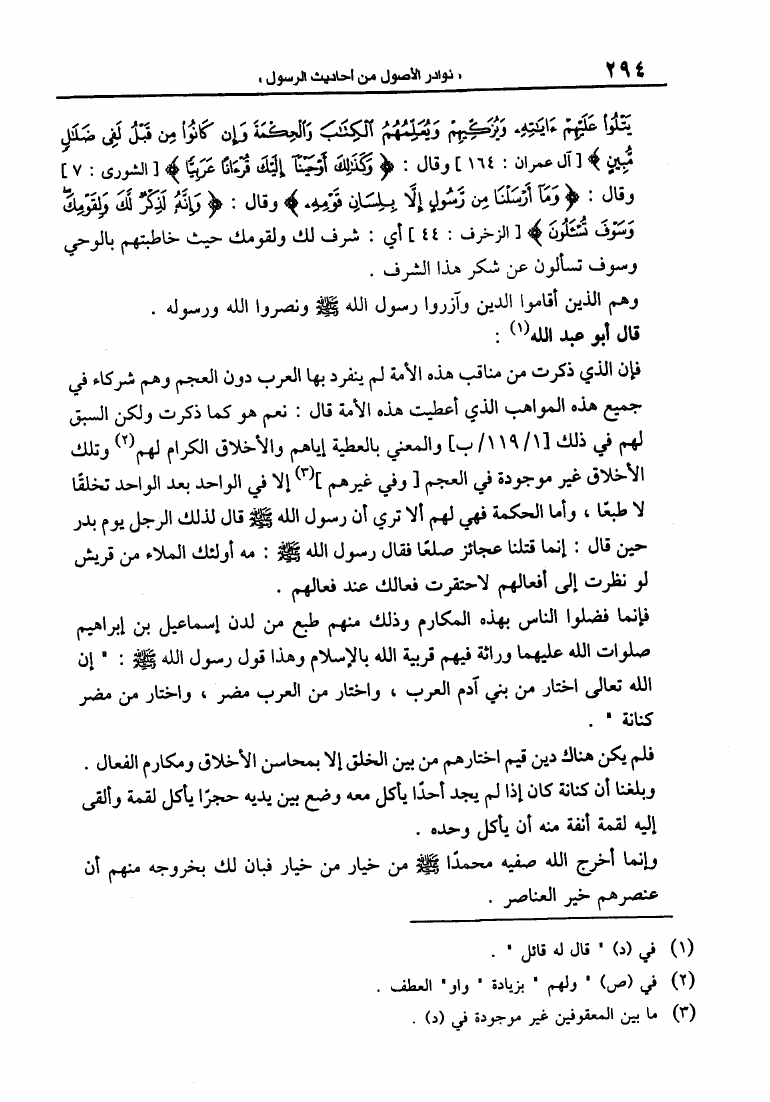 ٢٩٤
« نوادر الأصول من أحاديث الرسول »
يَتْلُوا۟ عَلَيْهِمْ ءَايَـٰتِهِۦ وَيُزَكِّيهِمْ وَيُعَلِّمُهُمُ ٱلْكِتَـٰبَ وَٱلْحِكْمَةَ وَإِن كَانُوا۟ مِن قَبْلُ لَفِى ضَلَـٰلٍ
مُّبِينٍ ﴾ [ آل عمران : ١٦٤ ] وقال : ﴿ وَكَذَٰلِكَ أَوْحَيْنَآ إِلَيْكَ قُرْءَانًا عَرَبِيًّا ﴾ [ الشورى : ٧ ]
وقال : ﴿ وَمَآ أَرْسَلْنَا مِن رَّسُولٍ إِلَّا بِلِسَانِ قَوْمِهِۦ ﴾ وقال : ﴿ وَإِنَّهُۥ لَذِكْرٌ لَّكَ وَلِقَوْمِكَ ۖ
وَسَوْفَ تُسْـَٔلُونَ ﴾ [ الزخرف : ٤٤ ] أي : شرف لك ولقومك حيث خاطبتهم بالوحي
وسوف تسألون عن شكر هذا الشرف .
وهم الذين أقاموا الدين وآزروا رسول الله ﷺ ونصروا الله ورسوله .
قال أبو عبد الله(١) :
فإن الذي ذكرت من مناقب هذه الأمة لم ينفرد بها العرب دون العجم وهم شركاء في
جميع هذه المواهب الذي أعطيت هذه الأمة قال : نعم هو كما ذكرت ولكن السبق
لهم في ذلك [١/ ١١٩/ ب] والمعني بالعطية إياهم والأخلاق الكرام لهم(٢) وتلك
الأخلاق غير موجودة في العجم [ وفي غيرهم ](٣) إلا في الواحد بعد الواحد تخلقًا
لا طبعًا ، وأما الحكمة فهي لهم ألا تري أن رسول الله ﷺ قال لذلك الرجل يوم بدر
حين قال : إنما قتلنا عجائز صلعًا فقال رسول الله ﷺ : مه أولئك الملاء من قريش
لو نظرت إلى أفعالهم لاحتقرت فعالك عند فعالهم .
فإنما فضلوا الناس بهذه المكارم وذلك منهم طبع من لدن إسماعيل بن إبراهيم
صلوات الله عليهما وراثة فيهم قربية الله بالإسلام وهذا قول رسول الله ﷺ : " إن
الله تعالى اختار من بني آدم العرب ، واختار من العرب مضر ، واختار من مضر
كنانة " .
فلم يكن هناك دين قيم اختارهم من بين الخلق إلا بمحاسن الأخلاق ومكارم الفعال .
وبلغنا أن كنانة كان إذا لم يجد أحدًا يأكل معه وضع بين يديه حجرًا يأكل لقمة وألقى
إليه لقمة أنفة منه أن يأكل وحده .
وإنما أخرج الله صفيه محمدًا ﷺ من خيار من خيار فبان لك بخروجه منهم أن
عنصرهم خير العناصر .
(١) في (د) " قال له قائل " .
(٢) في (ص) " ولهم " بزيادة " واو" العطف .
(٣) ما بين المعقوفين غير موجودة في (د) .